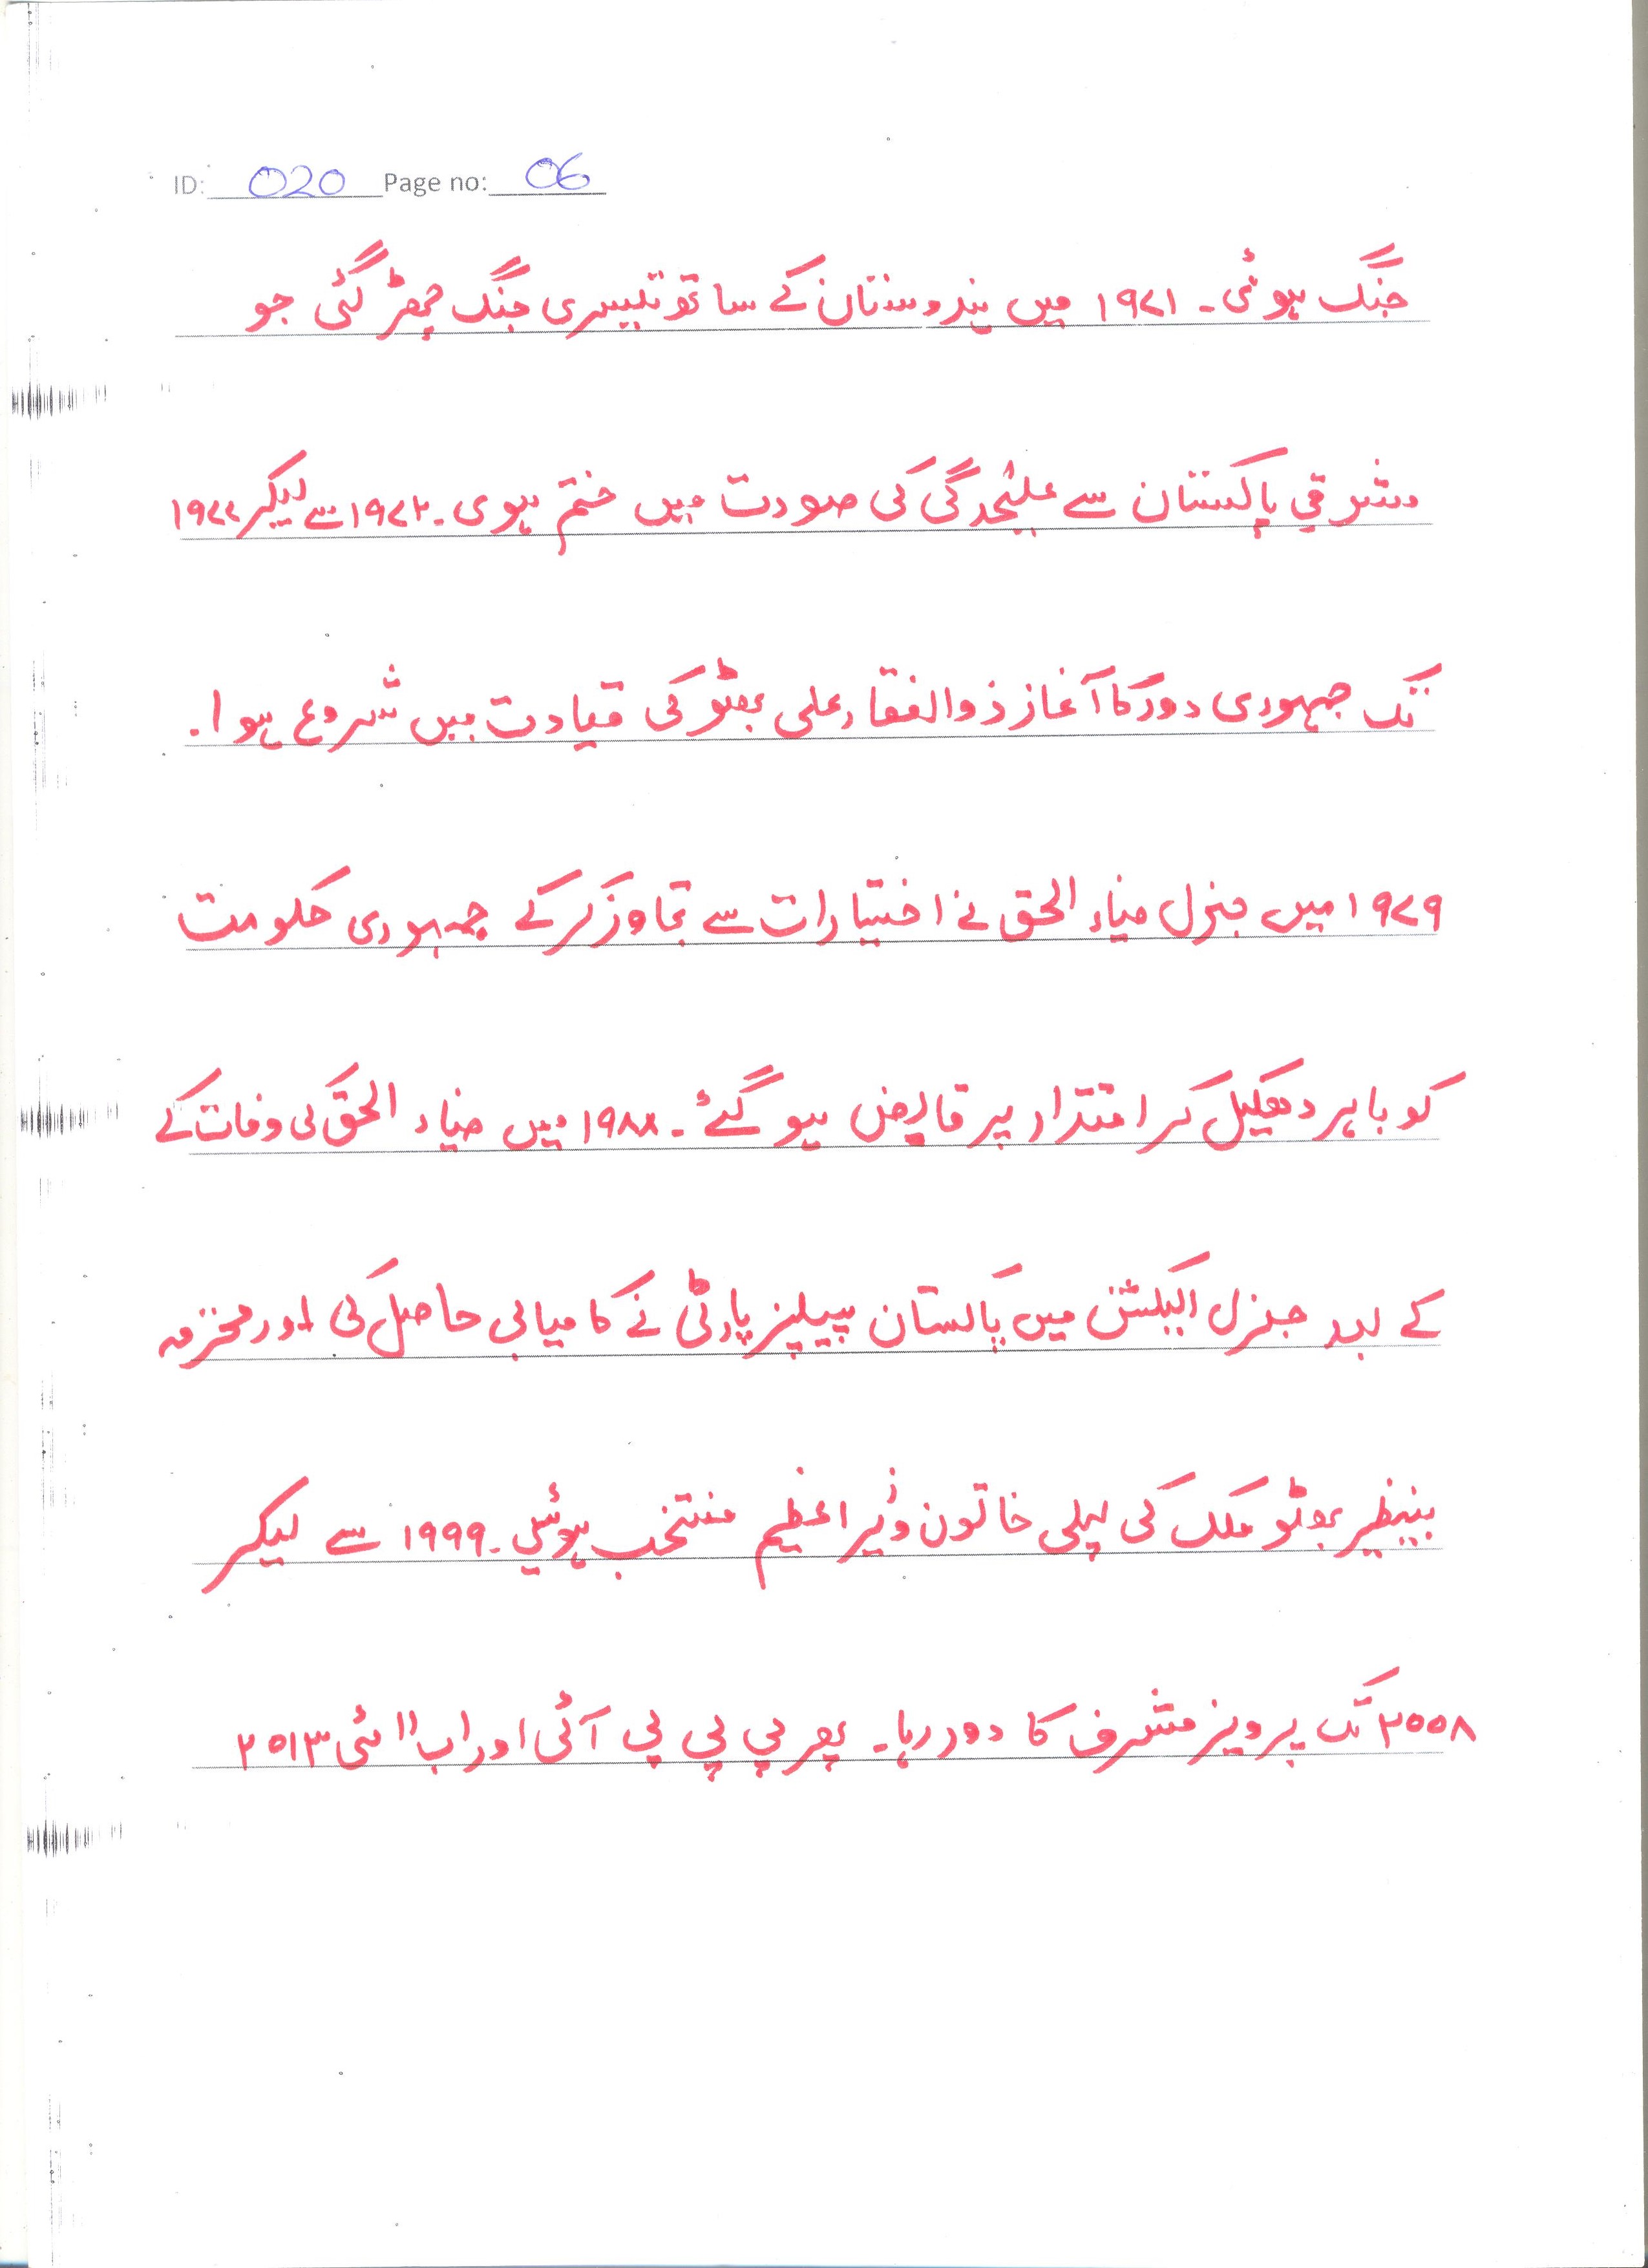 ID: 020 Page no: 06
جنگ ہوئی۔ ۱۹۷۱ میں ہندوستان کے ساتھ تیسری جنگ چھڑ گئی جو
مشرقی پاکستان سے علیٰحدگی کی صورت میں ختم ہوی۔ ۱۹۷۲ سے لیکر ۱۹۷۷
تک جمہوری دور کا آغاز ذوالفقار علی بھٹو کی قیادت میں شروع ہوا۔
۱۹۷۹ میں جنرل ضیاء الحق نے اختیارات سے تجاوز کر کے جمہوری حکومت
کو باہر دھکیل کر اقتدار پر قابض ہو گئے۔ ۱۹۸۸ میں ضیاء الحق کی وفات کے
کے بعد جنرل الیکشن میں پاکستان پیپلز پارٹی نے کامیابی حاصل کی اور محترمہ
بینظیر بھٹو ملک کی پہلی خاتون وزیراعظم منتخب ہوئیں۔ ۱۹۹۹ سے لیکر
۲۰۰۸ تک پرویز مشرف کا دور رہا۔ پھر پی پی پی آئی اور اب ۱۱ مئی ۲۰۱۳